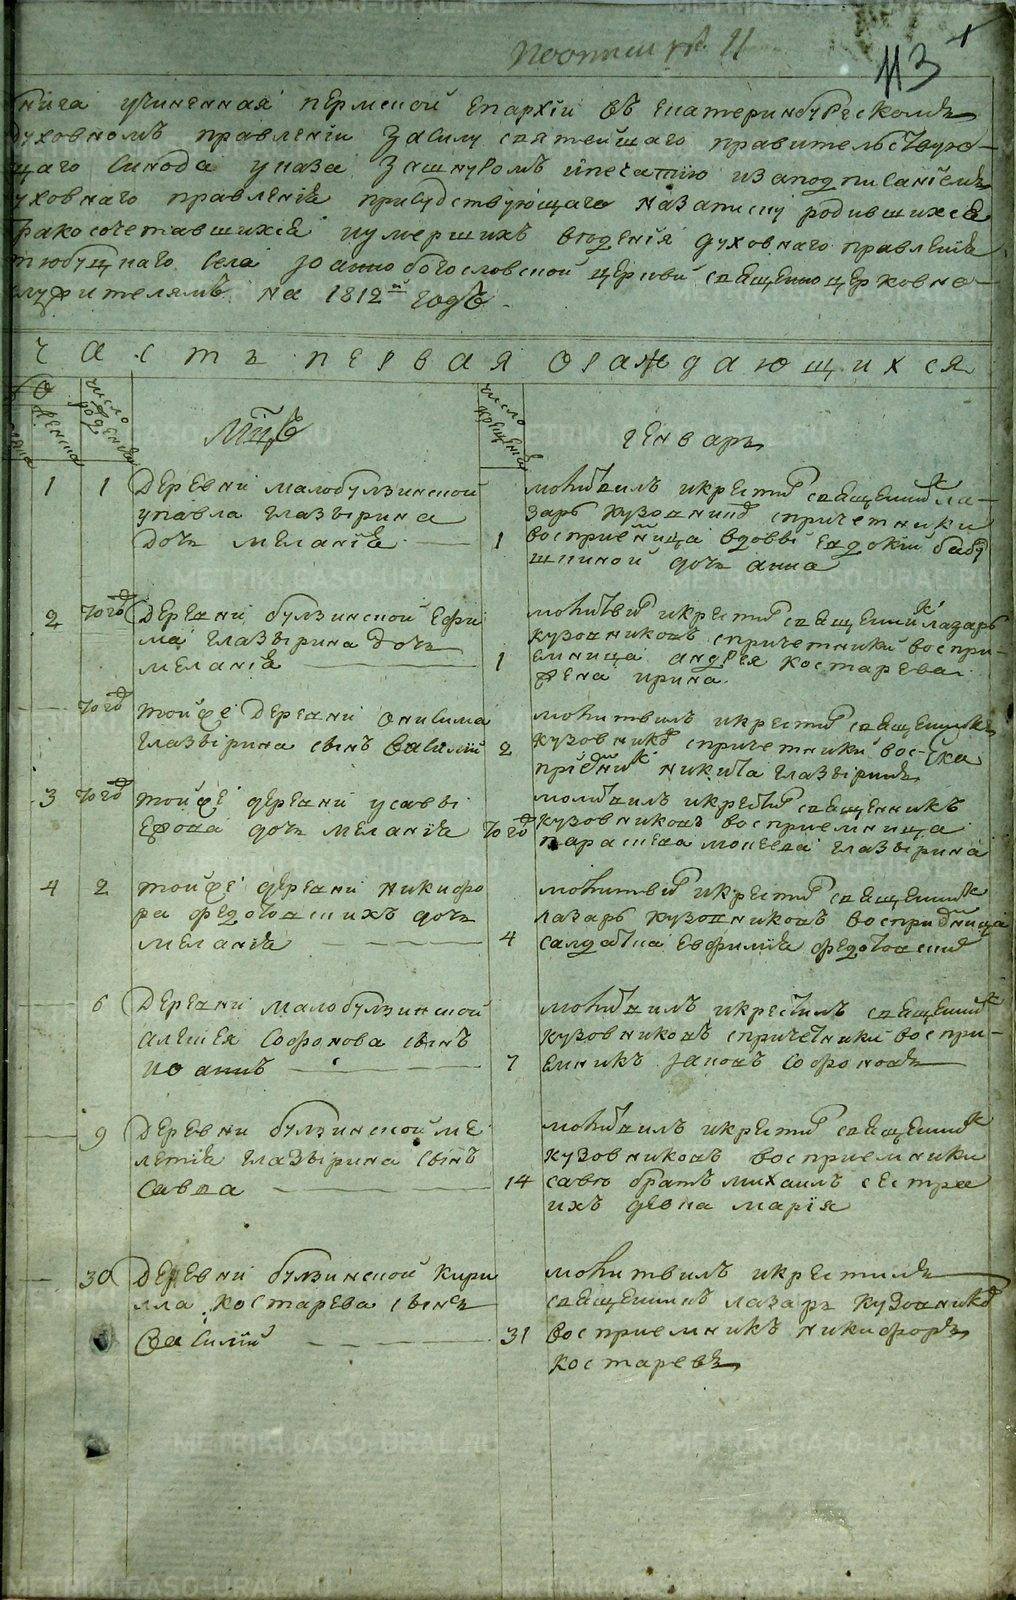 METRIKI.GASO-URAL.RU
113
книга учиненная пермской епархіи въ екатеринбургскомъ
духовномъ правленіи засилу святейшаго правительствую-
щаго синода указа зашнуромъ ипечатію изаподписаніемъ
духовнаго правленія присудствующаго назаписку родившихся
бракосочетавшихся иумершихъ вѣденія духовнаго правленія
села іоаннобогословской церкви священноцерковно-
служителямъ на 1812й годъ.
часть первая ораждающихся
женска
число рожденія
Мцъ
число крещенія
генварь
1 1 деревни малобулзинской
упавла глазырина
дочь меланія 1
молитвилъ икрестил священник ла-
зарь кузовников спричетники
восприемница вдовы евдокии
дочь анна
2 того деревни булзинской ефи
ма глазырина дочь
меланія 1
молитвил икрестил священник лазарь
кузовниковъ спричетники воспри-
емница андрея костарева
жена ирина
того тойже деревни онисима
глазырина сынъ василий 2
молитвилъ икрестил священникъ
кузовников спричетники вос-
приемник никита глазыринъ
3 того тойже деревни усаввы
дочь меланія того
молитвилъ икрестил священникъ
кузовниковъ восприемница
глазырина
4 2 тойже деревни никифо
ра федотовскихъ дочь
меланія 4
молитвил икрестил священник
лазарь кузовниковъ восприемница
салдатка евфимия
6 деревни малобулзинской
алексея софонова сынъ
иоаннъ 7
молитвилъ икрестилъ священник
кузовниковъ спричетники воспри-
емникъ іаковъ софоновъ
9 деревни булзинской ме
летія глазырина сынъ
савва 14
молитвилъ икрестил священник
кузовниковъ восприемники
братъ михаилъ сестра
ихъ девка марія
30 деревни булзинской кири
лла костарева сынъ
василий 31
молитвилъ икрестилъ
священникъ лазарь кузовников
восприемникъ никифоръ
костаревъ
METRIKI.GASO-URAL.RU